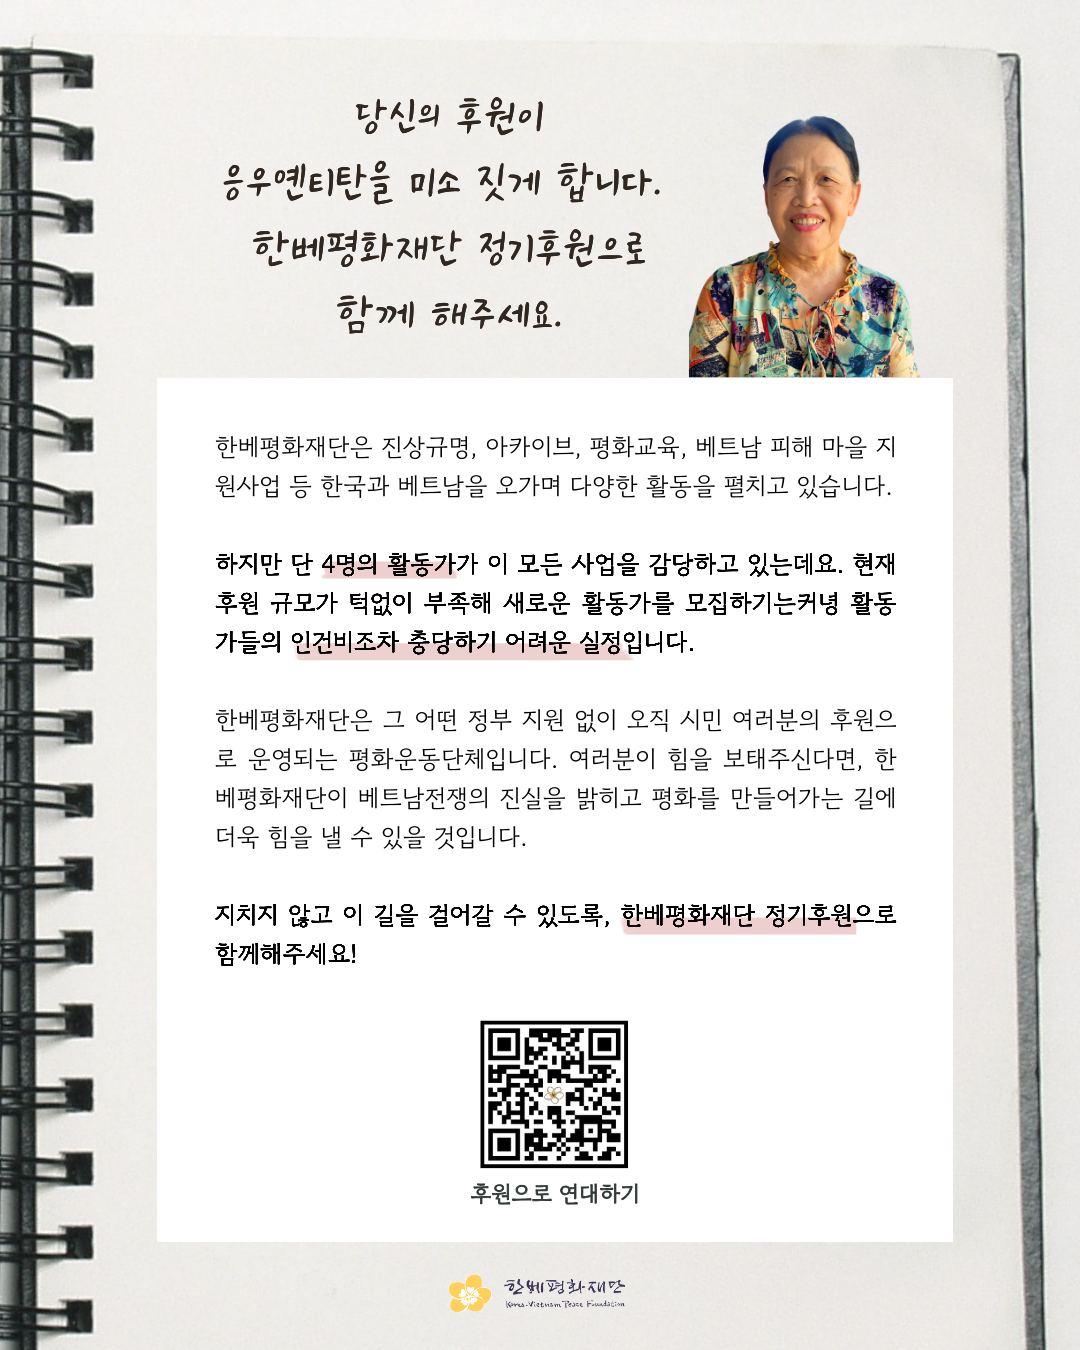 당신의 후원이
응우옌티탄을 미소 짓게 합니다.
한베평화재단 정기후원으로
함께 해주세요.
한베평화재단은 진상규명, 아카이브, 평화교육, 베트남 피해 마을 지
원사업 등 한국과 베트남을 오가며 다양한 활동을 펼치고 있습니다.
하지만 단 4명의 활동가가 이 모든 사업을 감당하고 있는데요. 현재
후원 규모가 턱없이 부족해 새로운 활동가를 모집하기는커녕 활동
가들의 인건비조차 충당하기 어려운 실정입니다.
한베평화재단은 그 어떤 정부 지원 없이 오직 시민 여러분의 후원으
로 운영되는 평화운동단체입니다. 여러분이 힘을 보태주신다면, 한
베평화재단이 베트남전쟁의 진실을 밝히고 평화를 만들어가는 길에
더욱 힘을 낼 수 있을 것입니다.
지치지 않고 이 길을 걸어갈 수 있도록, 한베평화재단 정기후원으로
함께해주세요!
후원으로 연대하기
한베평화재단
Korea-Vietnam Peace Foundation